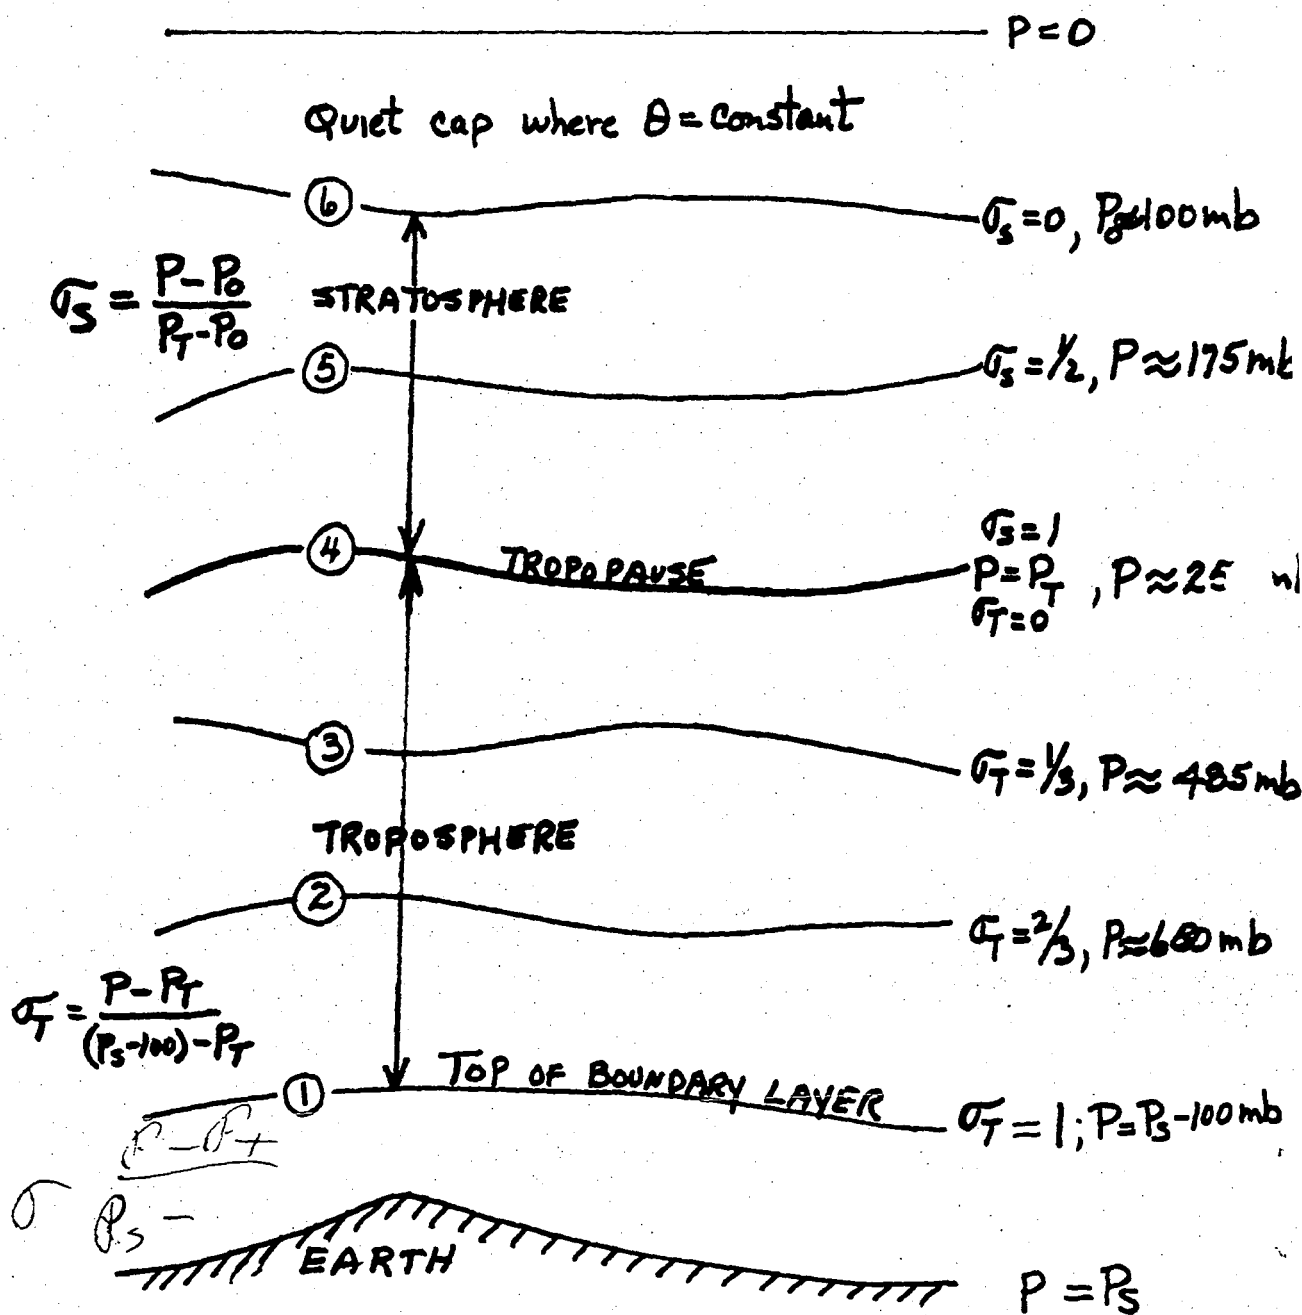 P = 0
Quiet cap where θ = constant
⑥
σ_S = 0, P_0≈100 mb
σ_S = (P - P_0) / (P_T - P_0)
STRATOSPHERE
⑤
σ_S = 1/2, P ≈ 175 mb
④
TROPOPAUSE
σ_S = 1
P = P_T , P ≈ 25
σ_T = 0
③
σ_T = 1/3, P ≈ 485 mb
TROPOSPHERE
②
σ_T = 2/3, P≈680 mb
σ_T = (P - P_T) / ((P_S - 100) - P_T)
①
TOP OF BOUNDARY LAYER
σ_T = 1; P = P_S - 100 mb
σ
P_S -
EARTH
P = P_S